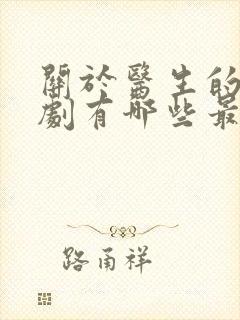 關於醫生的
劇有哪些最
路甬祥